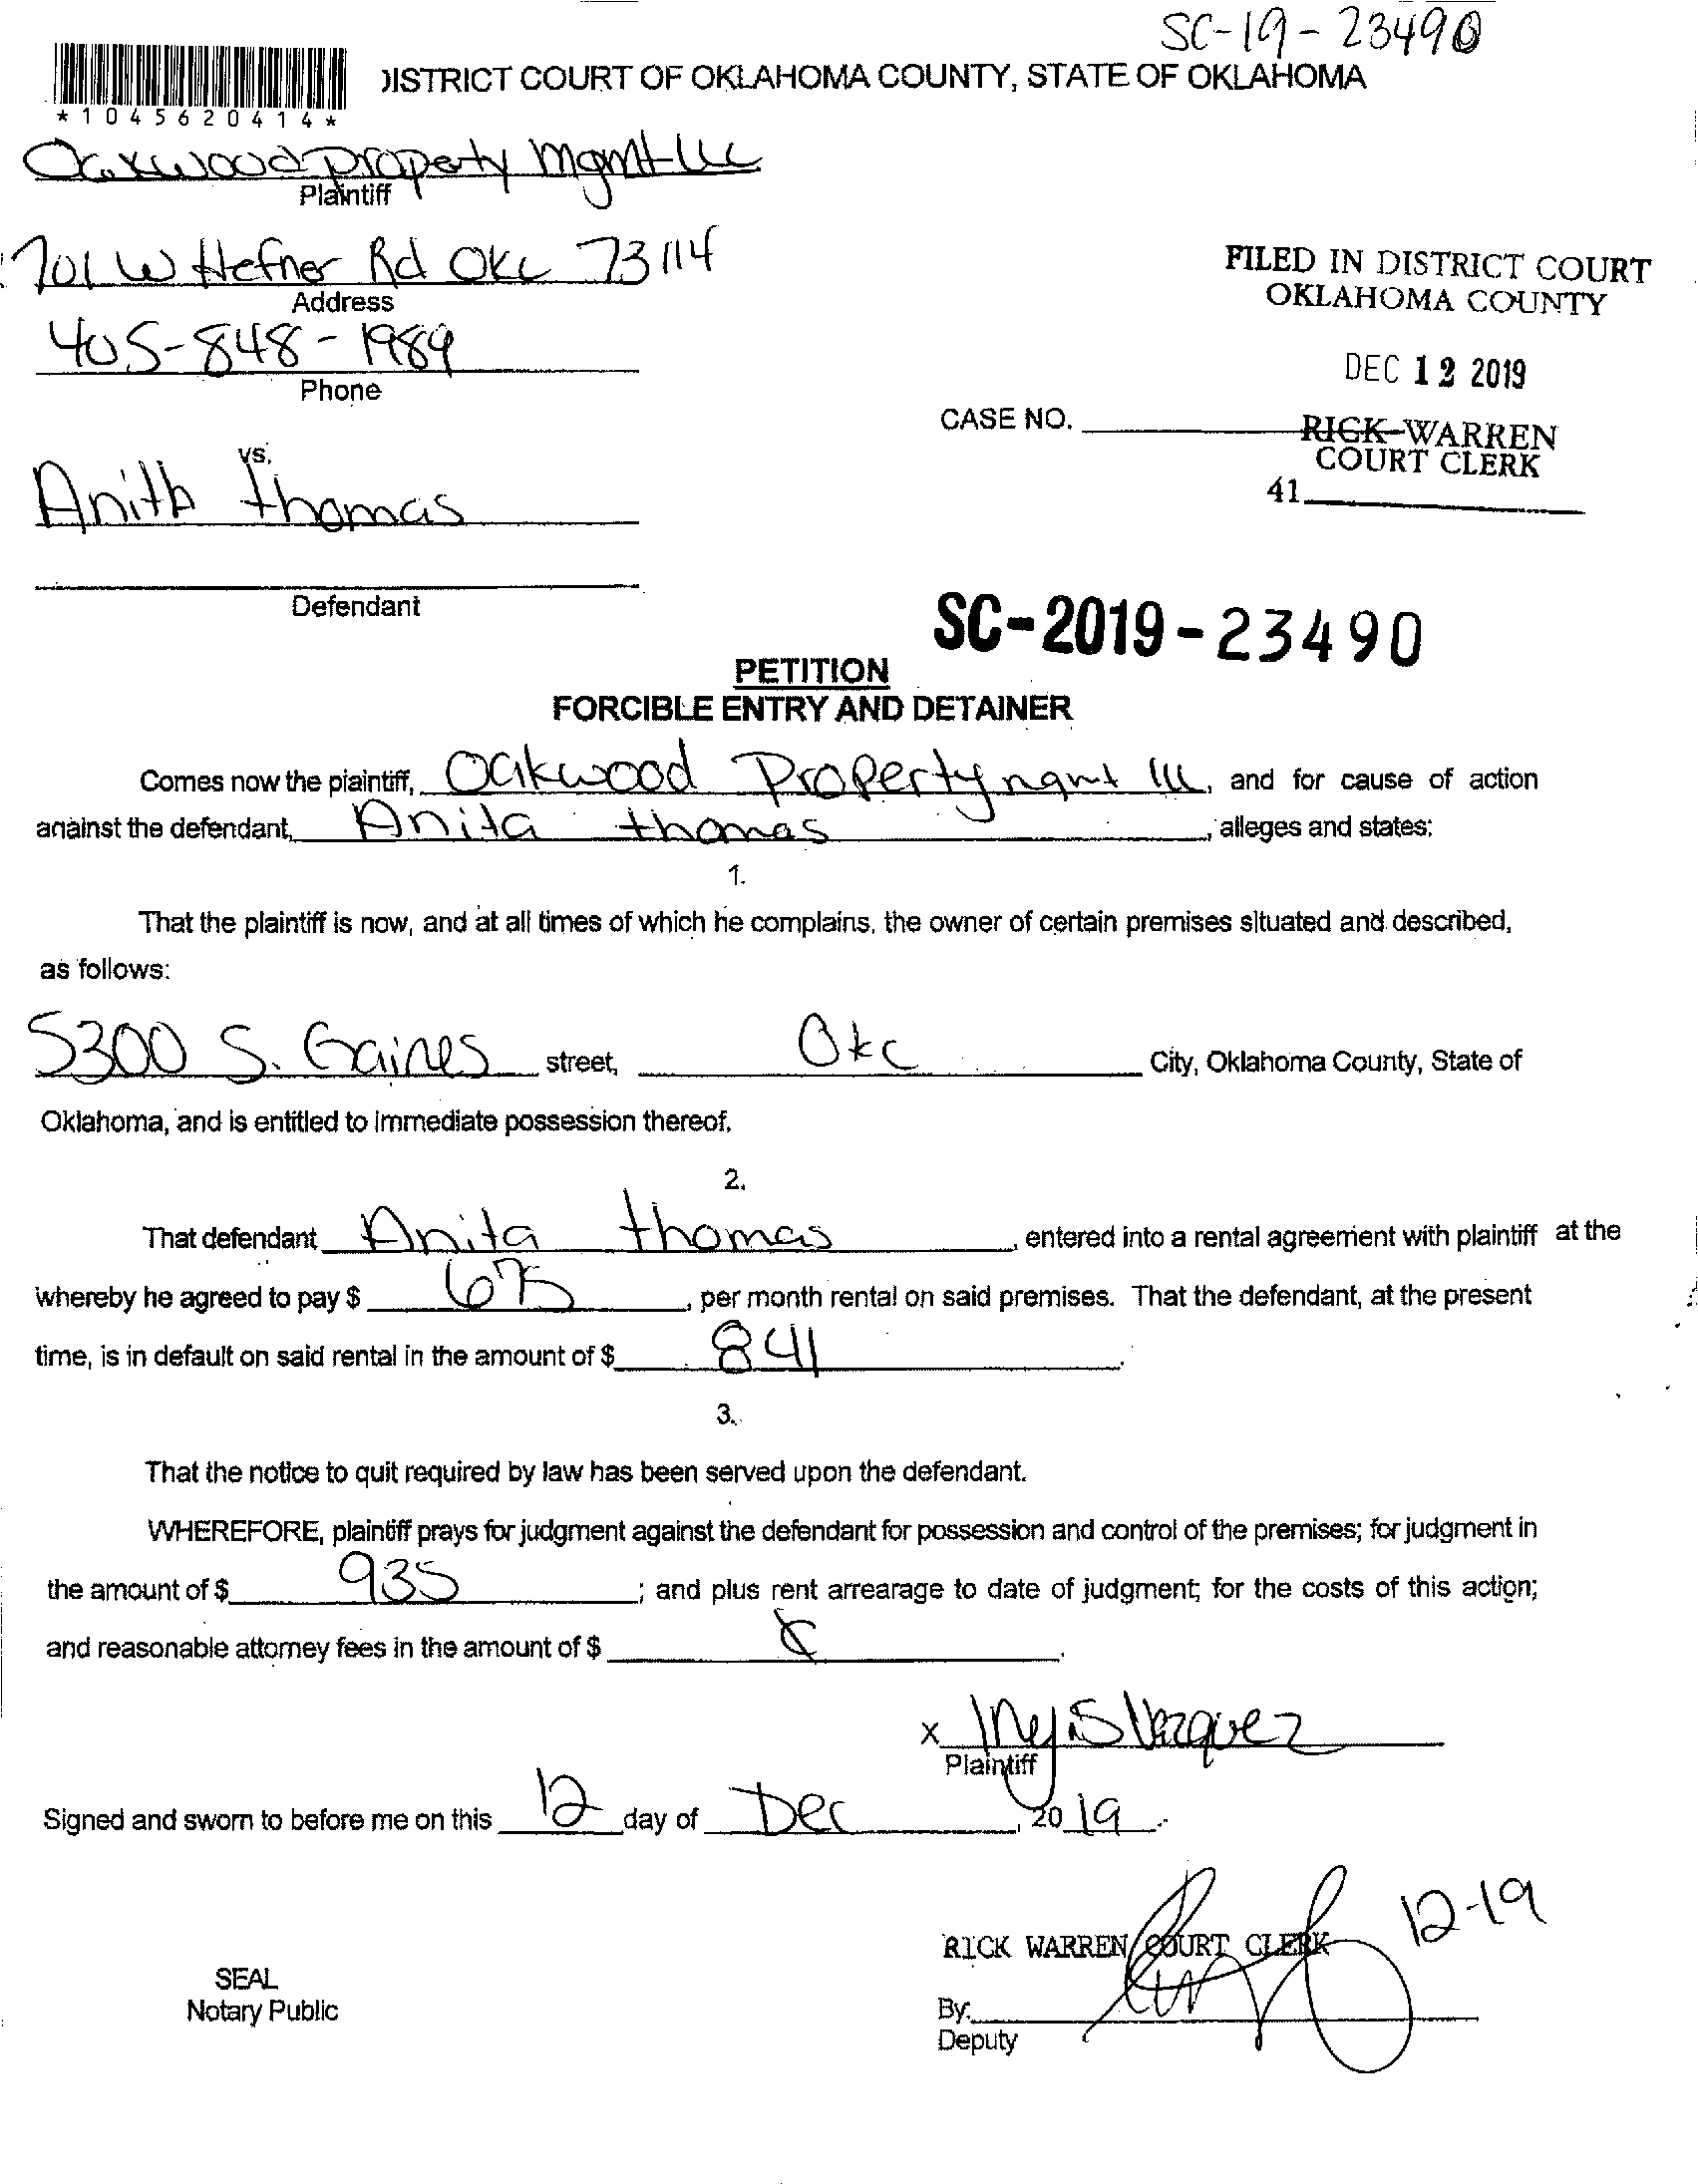 SC-19-23490
DISTRICT COURT OF OKLAHOMA COUNTY, STATE OF OKLAHOMA
*1045620414*
Oakwood Property Mgmt LLC
Plaintiff
701 W Hefner Rd OKC 73114
Address
FILED IN DISTRICT COURT
OKLAHOMA COUNTY
405-848-1989
Phone
DEC 12 2019
CASE NO.
RICK WARREN
COURT CLERK
41
vs.
Anita thomas
Defendant
SC-2019-23490
PETITION
FORCIBLE ENTRY AND DETAINER
Comes now the plaintiff, Oakwood Property mgmt llc, and for cause of action
against the defendant, Anita thomas, alleges and states:
1.
That the plaintiff is now, and at all times of which he complains, the owner of certain premises situated and described,
as follows:
5300 S. Gaines street, Okc City, Oklahoma County, State of
Oklahoma, and is entitled to immediate possession thereof.
2.
That defendant Anita thomas, entered into a rental agreement with plaintiff at the
whereby he agreed to pay $ 675, per month rental on said premises. That the defendant, at the present
time, is in default on said rental in the amount of $ 841.
3.
That the notice to quit required by law has been served upon the defendant.
WHEREFORE, plaintiff prays for judgment against the defendant for possession and control of the premises; for judgment in
the amount of $ 935; and plus rent arrearage to date of judgment; for the costs of this action;
and reasonable attorney fees in the amount of $
X Vazquez
Plaintiff
Signed and sworn to before me on this 12 day of Dec, 2019.
12-19
RICK WARREN COURT CLERK
SEAL
Notary Public
By:
Deputy